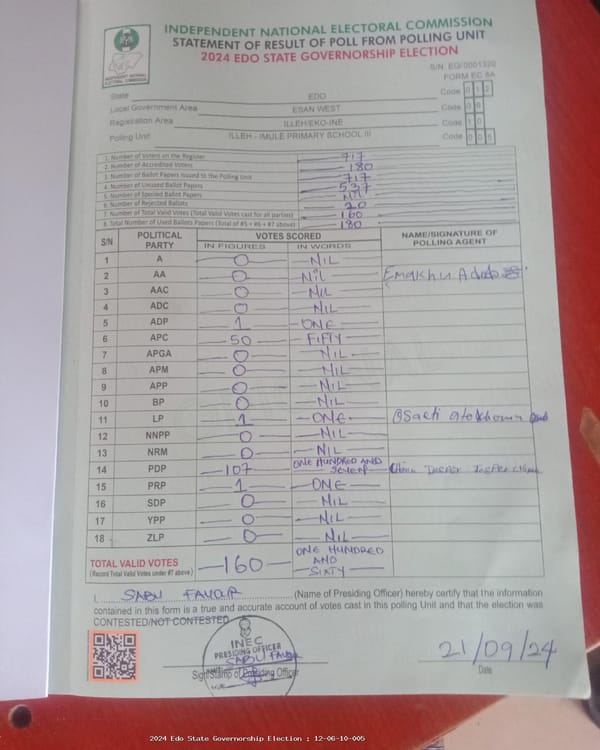 INDEPENDENT NATIONAL ELECTORAL COMMISSION
STATEMENT OF RESULT OF POLL FROM POLLING UNIT
2024 EDO STATE GOVERNORSHIP ELECTION
INDEPENDENT NATIONAL ELECTORAL COMMISSION
S/N EG/0001320
FORM EC 8A
State EDO Code 0 1 2
Local Government Area ESAN WEST Code 0 6
Registration Area ILLEH/EKO-INE Code 1 0
Polling Unit ILLEH - IMULE PRIMARY SCHOOL III Code 0 0 5
1. Number of Voters on the Register 717
2. Number of Accredited Voters 180
3. Number of Ballot Papers Issued to the Polling Unit 717
4. Number of Unused Ballot Papers 537
5. Number of Spoiled Ballot Papers NIL
6. Number of Rejected Ballots 20
7. Number of Total Valid Votes (Total Valid Votes cast for all parties) 160
8. Total Number of Used Ballots Papers (Total of #5 + #6 + #7 above) 180
S/N POLITICAL PARTY VOTES SCORED NAME/SIGNATURE OF POLLING AGENT
IN FIGURES IN WORDS
1 A 0 NIL
2 AA 0 NIL
3 AAC 0 NIL
4 ADC 0 NIL
5 ADP 1 ONE
6 APC 50 FIFTY
7 APGA 0 NIL
8 APM 0 NIL
9 APP 0 NIL
10 BP 0 NIL
11 LP 1 ONE
12 NNPP 0 NIL
13 NRM 0 NIL
14 PDP 107 ONE HUNDRED AND SEVEN
15 PRP 1 ONE
16 SDP 0 NIL
17 YPP 0 NIL
18 ZLP 0 NIL
TOTAL VALID VOTES 160 ONE HUNDRED AND SIXTY
(Record Total Valid Votes under #7 above)
I, SABU FAVOUR (Name of Presiding Officer) hereby certify that the information
contained in this form is a true and accurate account of votes cast in this polling Unit and that the election was
CONTESTED/NOT CONTESTED
INEC
PRESIDING OFFICER
SABU FAVOUR
Sign/Stamp of Presiding Officer
21/09/24
Date
2024 Edo State Governorship Election : 12-06-10-005